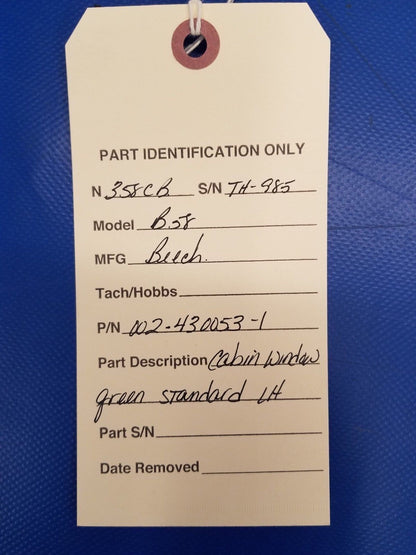 PART IDENTIFICATION ONLY
N 358CB S/N TH-985
Model B58
MFG Beech.
Tach/Hobbs
P/N 002-430053-1
Part Description Cabin Window
green standard LH
Part S/N
Date Removed